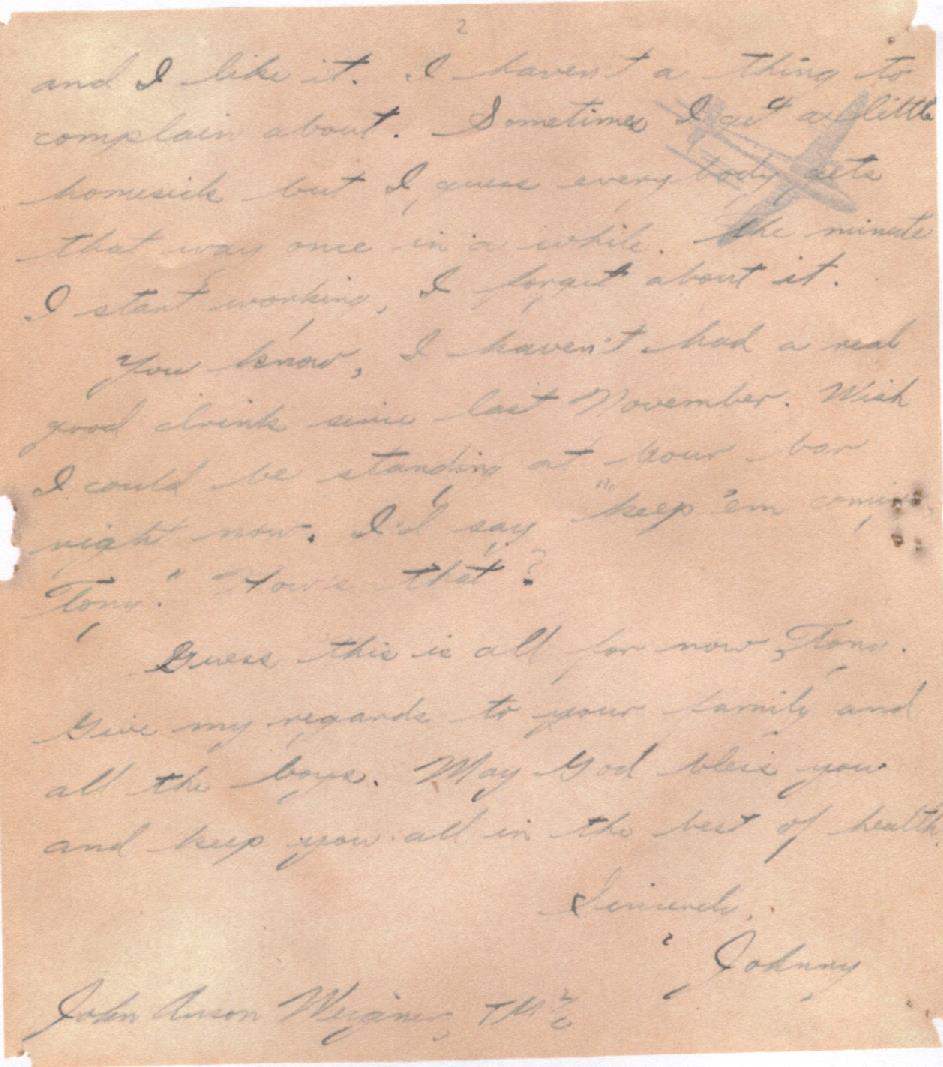 2
and I like it. I haven't a thing to
complain about. Sometimes I get a little
homesick but I guess everybody gets
that way once in a while. The minute
I start working, I forget about it.
You know, I haven't had a real
good drink since last November. Wish
I could be standing at your bar
right now. I'd say "keep 'em coming,
Tony." How's that?
Guess this is all for now Tony.
Give my regards to your family and
all the boys. May God bless you
and keep you all in the best of health.
Sincerely,
Johnny
John Anson